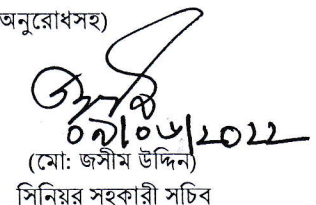 অনুরোধসহ)
০৯/০৬/২০২২
(মো: জসীম উদ্দিন)
সিনিয়র সহকারী সচিব